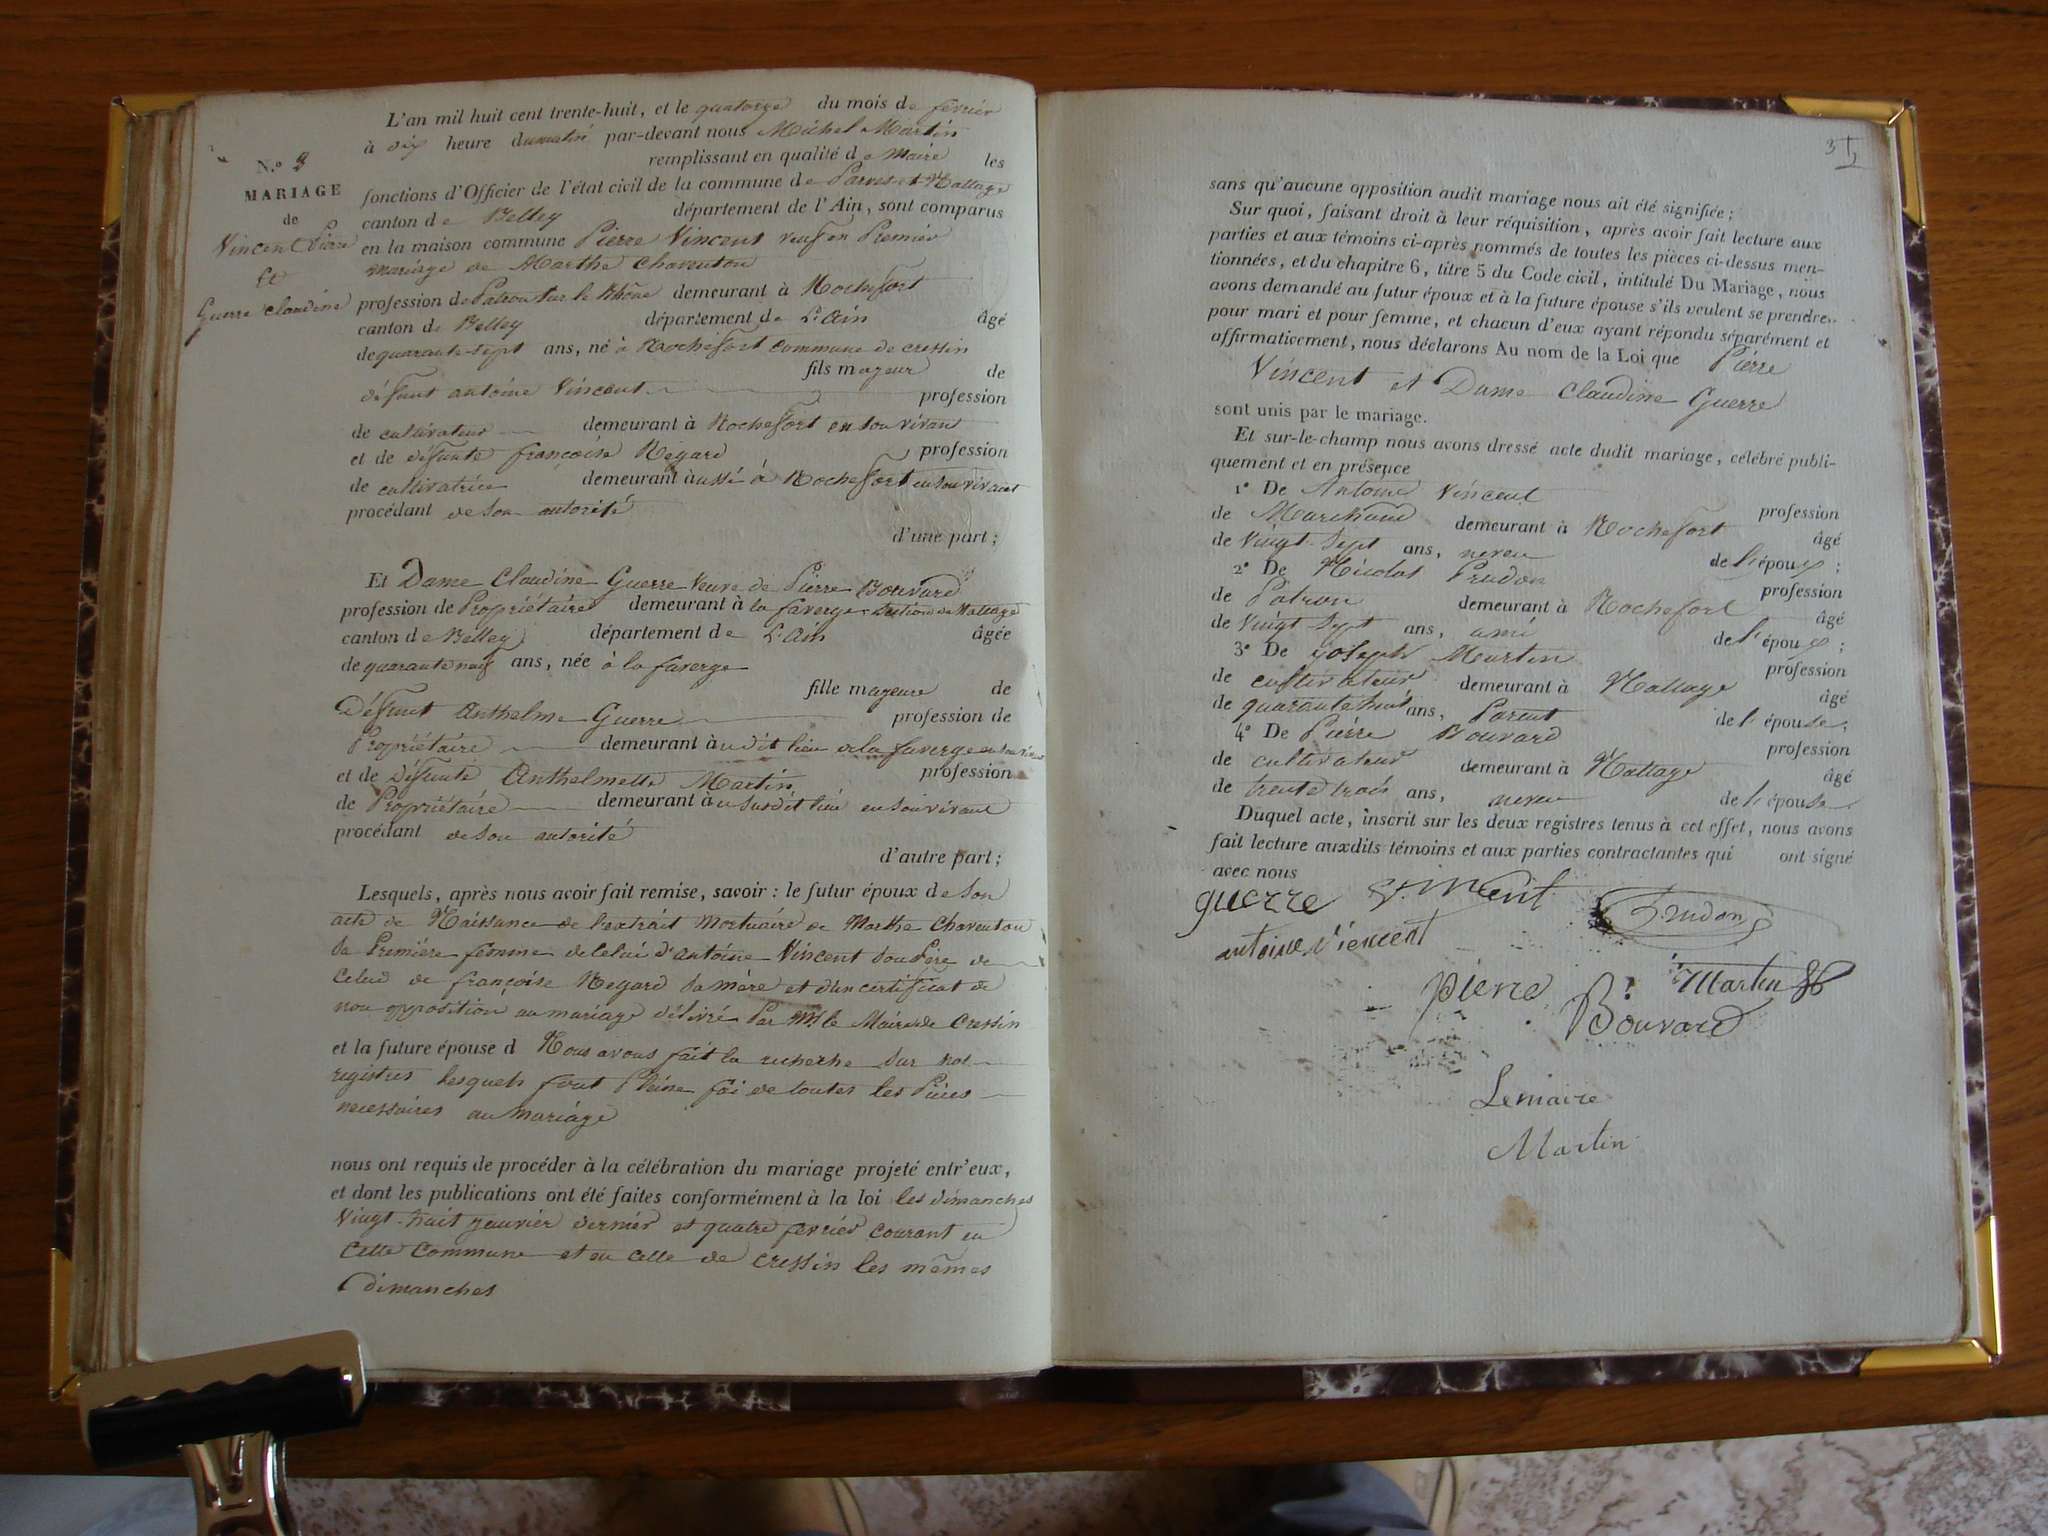 L'an mil huit cent trente-huit, et le quatorze du mois de février
à six heure dumatin par-devant nous Michel Martin
remplissant en qualité de Maire les
N.o 3
MARIAGE
de
Vincent Pierre
Et
Guerre Claudine
fonctions d'Officier de l'état civil de la commune de Parves et Nattage
canton de Belley département de l'Ain, sont comparus
en la maison commune Pierre Vincent veuf en Premier
mariage de Marthe Chaventon
profession de Patron sur le Rhône demeurant à Rochefort
canton de Belley département de L'Ain âgé
de quarante-sept ans, né à Rochefort commune de cressin
fils majeur de
défunt antoine Vincent profession
de cultivateur demeurant à Rochefort en son vivant
et de défunte françoise Régard profession
de cultivatrice demeurant àussi à Rochefort en son vivant
procédant de son autorité
d'une part;
Et Dame Claudine Guerre Veuve de Pierre Bouvard
profession de Propriétaire demeurant à la faverge section de Nattage
canton de Belley département de L'Ain âgée
de quarante neuf ans, née à la faverge
fille majeure de
Défunt Anthelme Guerre profession de
Propriétaire demeurant àudit lieu de la faverge en son vivant
et de Défunte Anthelmette Martin profession
de Propriétaire demeurant àu susdit lieu en son vivant
procédant de son autorité
d'autre part;
Lesquels, après nous avoir fait remise, savoir : le futur époux de son
acte de Naissance de l'extrait mortuaire de Marthe Chaventon
Sa Première femme de celui d'antoine Vincent son Père de
Celui de françoise Regard Sa mère et d'un certificat de
non opposition au mariage délivré Par Mr le Maire de Cressin
et la future épouse d Nous avons fait la recherche sur nos
registres lesquels font Pleine foi de toutes les Pièces
necessaires au mariage
nous ont requis de procéder à la célébration du mariage projeté entr'eux,
et dont les publications ont été faites conformément à la loi les dimanches
Vingt-huit janvier dernier et quatre février courant en
cette commune et en celle de cressin les mêmes
dimanches
sans qu'aucune opposition audit mariage nous ait été signifiée;
Sur quoi, faisant droit à leur réquisition, après avoir fait lecture aux
parties et aux témoins ci-après nommés de toutes les pièces ci-dessus men-
tionnées, et du chapitre 6, titre 5 du Code civil, intitulé Du Mariage, nous
avons demandé au futur époux et à la future épouse s'ils veulent se prendre
pour mari et pour femme, et chacun d'eux ayant répondu séparément et
affirmativement, nous déclarons Au nom de la Loi que Pierre
Vincent et Dame Claudine Guerre
sont unis par le mariage.
Et sur-le-champ nous avons dressé acte dudit mariage, célébré publi-
quement et en présence
1° De Antoine Vincent profession
de Marchand demeurant à Rochefort âgé
de Vingt-Sept ans, neveu de l'époux;
2° De Nicolas Prudon profession
de Patron demeurant à Rochefort âgé
de Vingt Sept ans, ami de l'époux;
3° De joseph Martin profession
de cultivateur demeurant à Nattage âgé
de quarante huit ans, Parent de l'épouse;
4° De Pierre Bouvard profession
de cultivateur demeurant à Nattage âgé
de trente trois ans, neveu de l'épouse
Duquel acte, inscrit sur les deux registres tenus à cet effet, nous avons
fait lecture auxdits témoins et aux parties contractantes qui ont signé
avec nous
guerre Vincent Prudon
antoine Viencent
Martin
pierre Bouvard
Lemaire
Martin